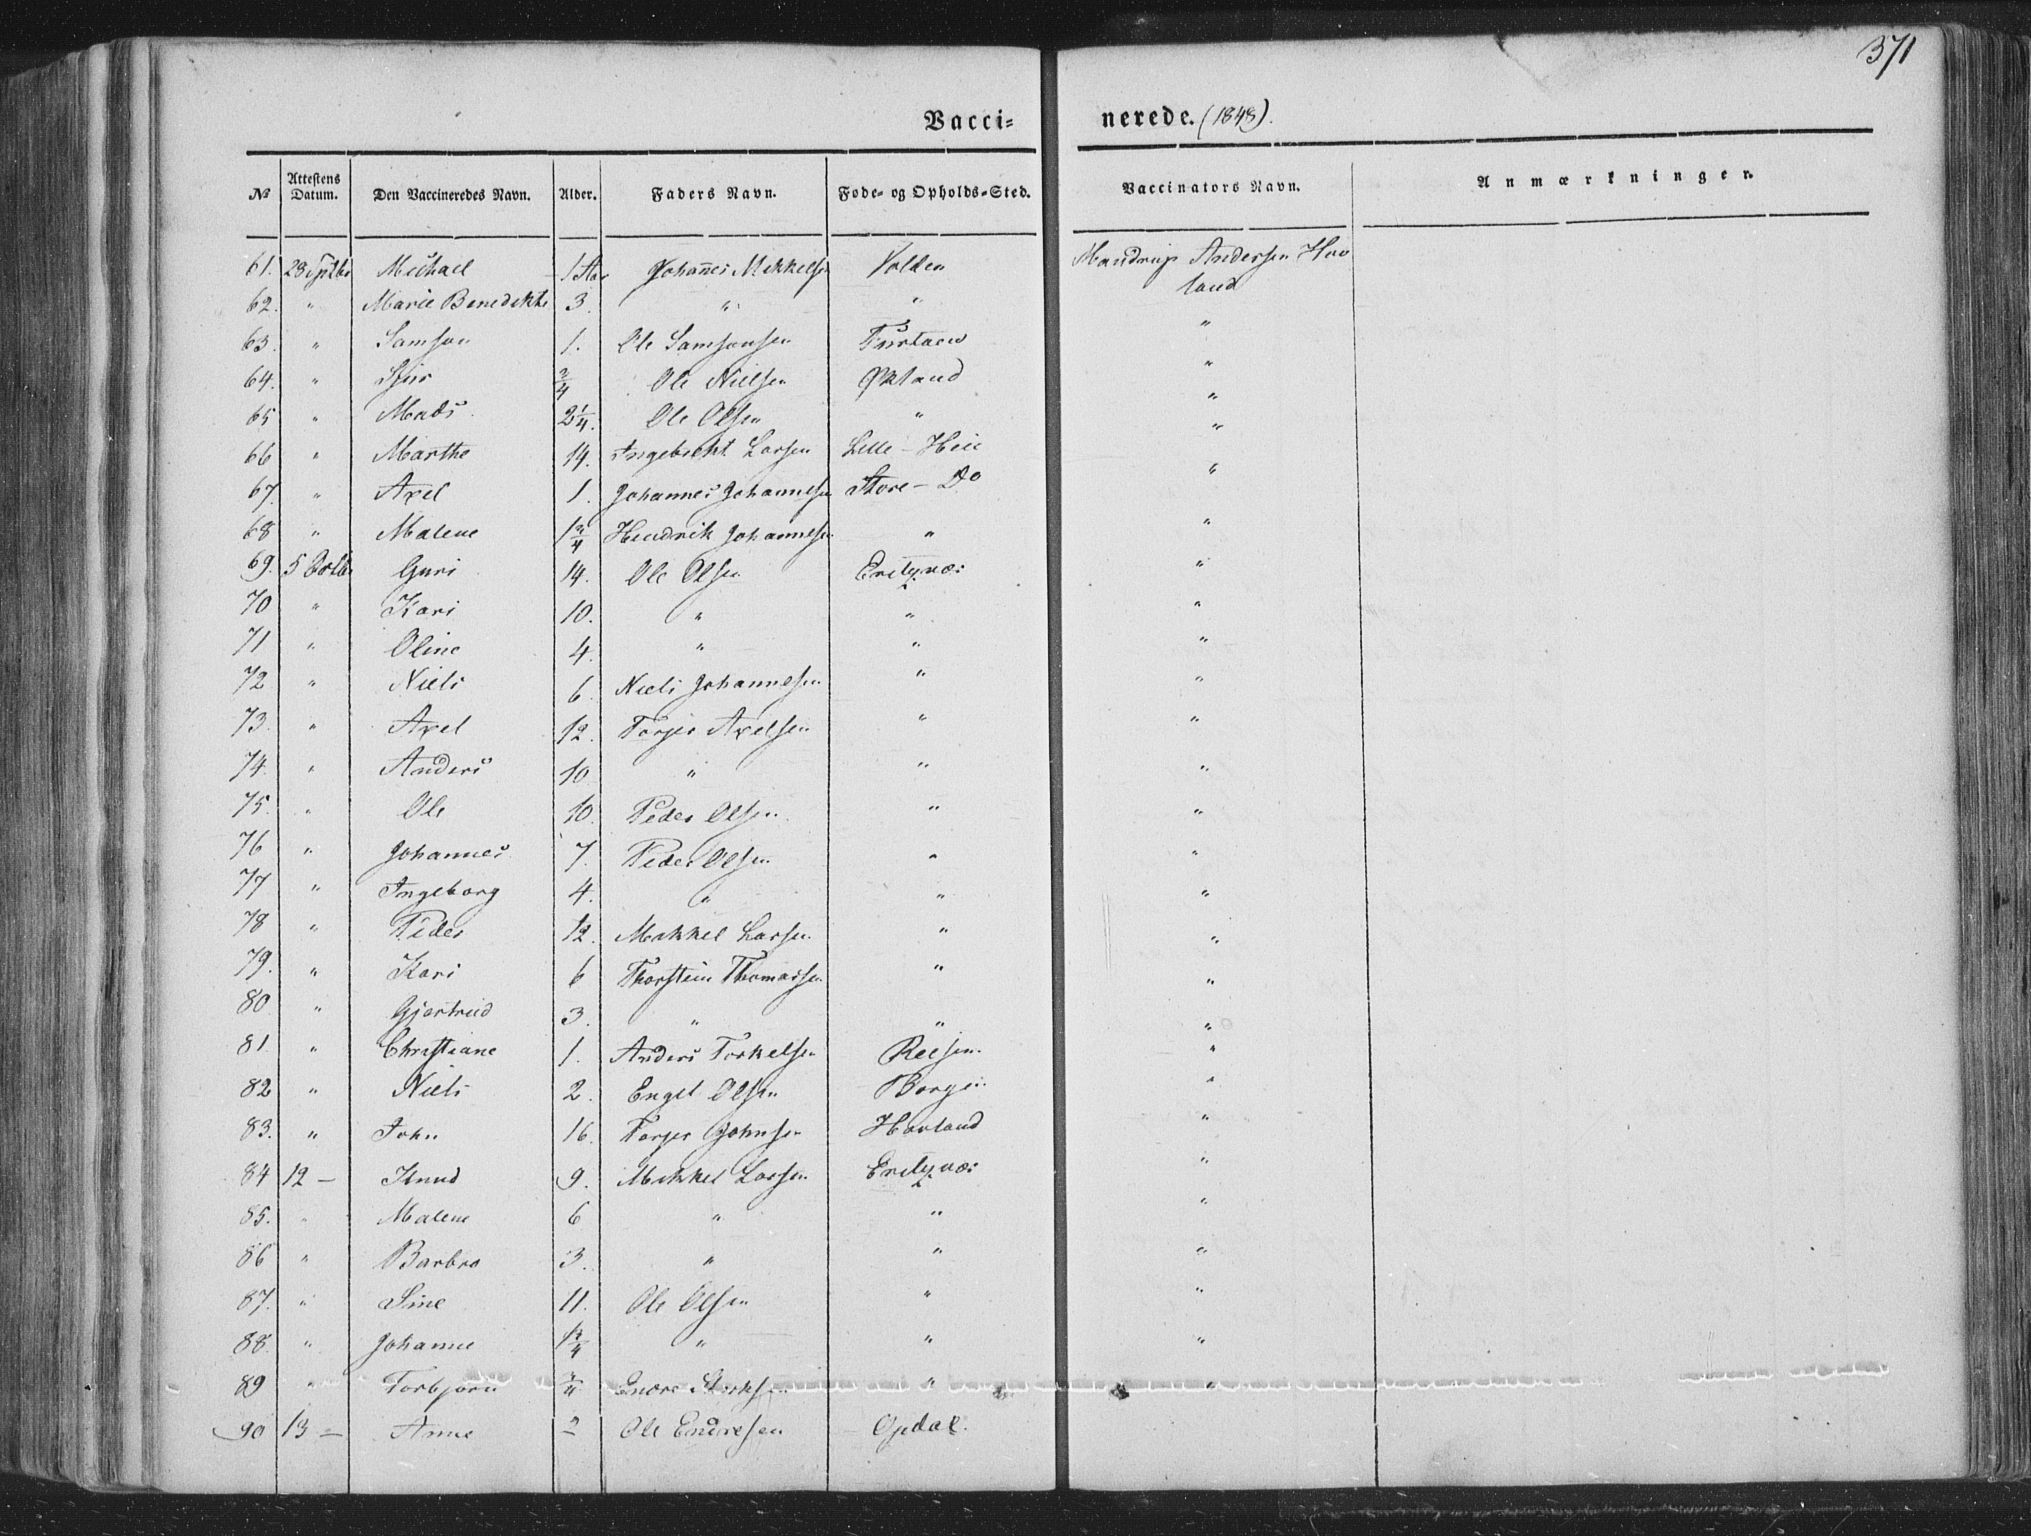 371
Vacci- nerede. (1848).
No Attestens Datum. Den Vaccineredes Navn. Alder. Faders Navn. Føde- og Opholds-Sted. Vaccinators Navn. Anmærkninger.
61. 28 Sptbr Michael 1 Aar Johannes Mikkelsen Volden Mandrup Andersen Hav
62. " Marie Benedikte 3. " " land
63. " Samson 1. Ole Samsonsen "
64. " Sjur 3/4 Ole Nielsen Økland "
65 " Mads. 2 1/4. Ole Olsen " "
66 " Marthe 14. Ingebricht Larsen Lille - Heie "
67. " Axel 1. Johannes Johannesen Store - Do "
68 " Malene 1 3/4 Hendrik Johannesen " "
69. 5 Octbr Guri 14. Ole Olsen "
70 " Kari 10. " " "
71 " Oline 4. " " "
72 " Niels 6. Niels Johannesen " "
73. " Axel 12. Torjer Axelsen " "
74. " Anders 10 " " "
75. " Ole 10. Peder Olsen " "
76 " Johannes 7. Peder Olsen " "
77 " Ingeborg 4. " " "
78 " Peder 12. Mikkel Larsen " "
79. " Kari 6 Thorstein Thomassen " "
80. " Gjertrud 3. " " "
81. " Christiane 1. Anders Torkelsen "
82 " Niels 2. Engel Olsen Borgen "
83. " John 16. Torjer Johnsen Havland "
84 12 - Knud 9. Mikkel Larsen "
85. " Malene 6 " " "
86 " Barbro 3. " " "
87. " Sine 11. Ole Olsen " "
88. " Johanne 1 3/4 " " "
89 " Torbjørn 3/4 Endre " "
90 13 - Anne 2 Ole Endresen Opdal.